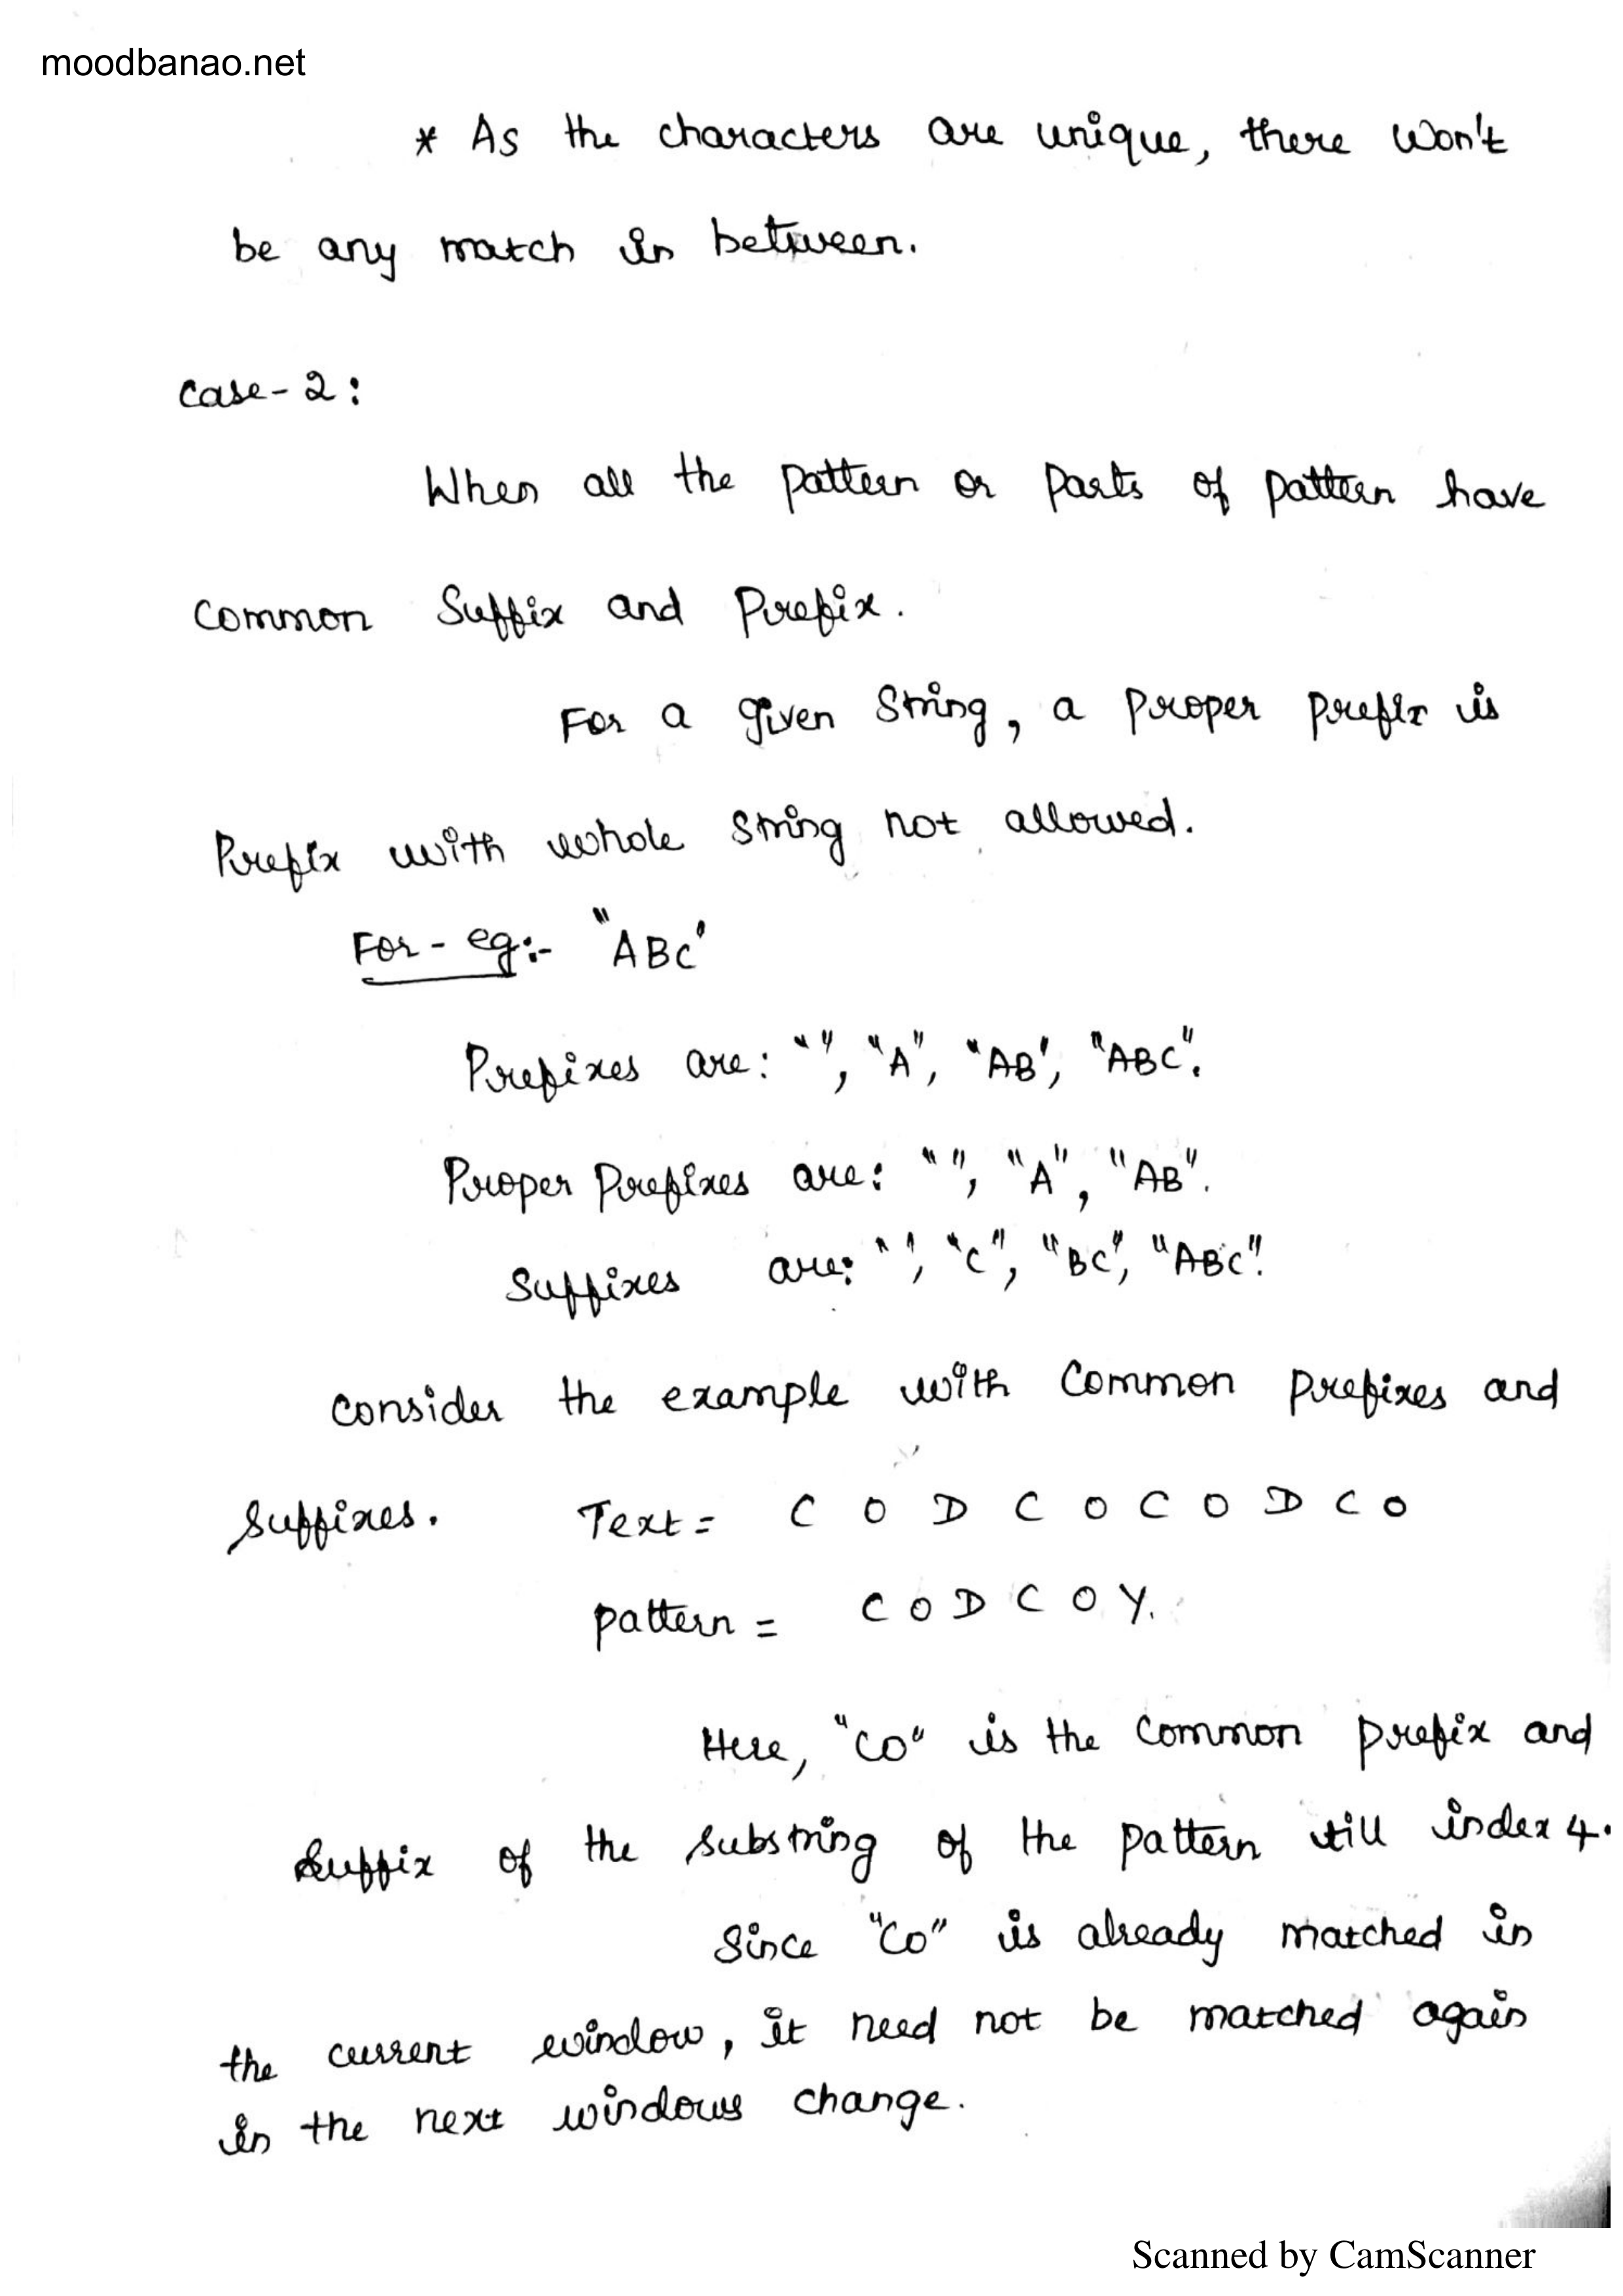 moodbanao.net
* As the characters are unique, there won't
be any match in between.
case-2:
When all the pattern or parts of pattern have
common Suffix and Prefix.
For a given String, a proper prefix is
Prefix with whole string not allowed.
For-eg:- "ABC'
Prefixes are: " ", "A", "AB', "ABC".
Proper Prefixes are: " ", "A", "AB".
Suffixes are: " ', "C", "BC", "ABC".
consider the example with Common prefixes and
suffixes. Text = C O D C O C O D C O
pattern = C O D C O Y.
Here, "CO" is the Common prefix and
suffix of the substring of the pattern till index 4.
Since "CO" is already matched in
the current window, it need not be matched again
in the next windows change.
Scanned by CamScanner